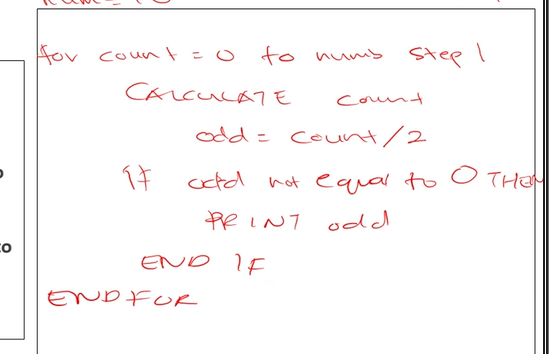 for count = 0 to numb step 1
CALCULATE count
odd = count/2
If odd not equal to 0 THEN
PRINT odd
END IF
ENDFOR
to